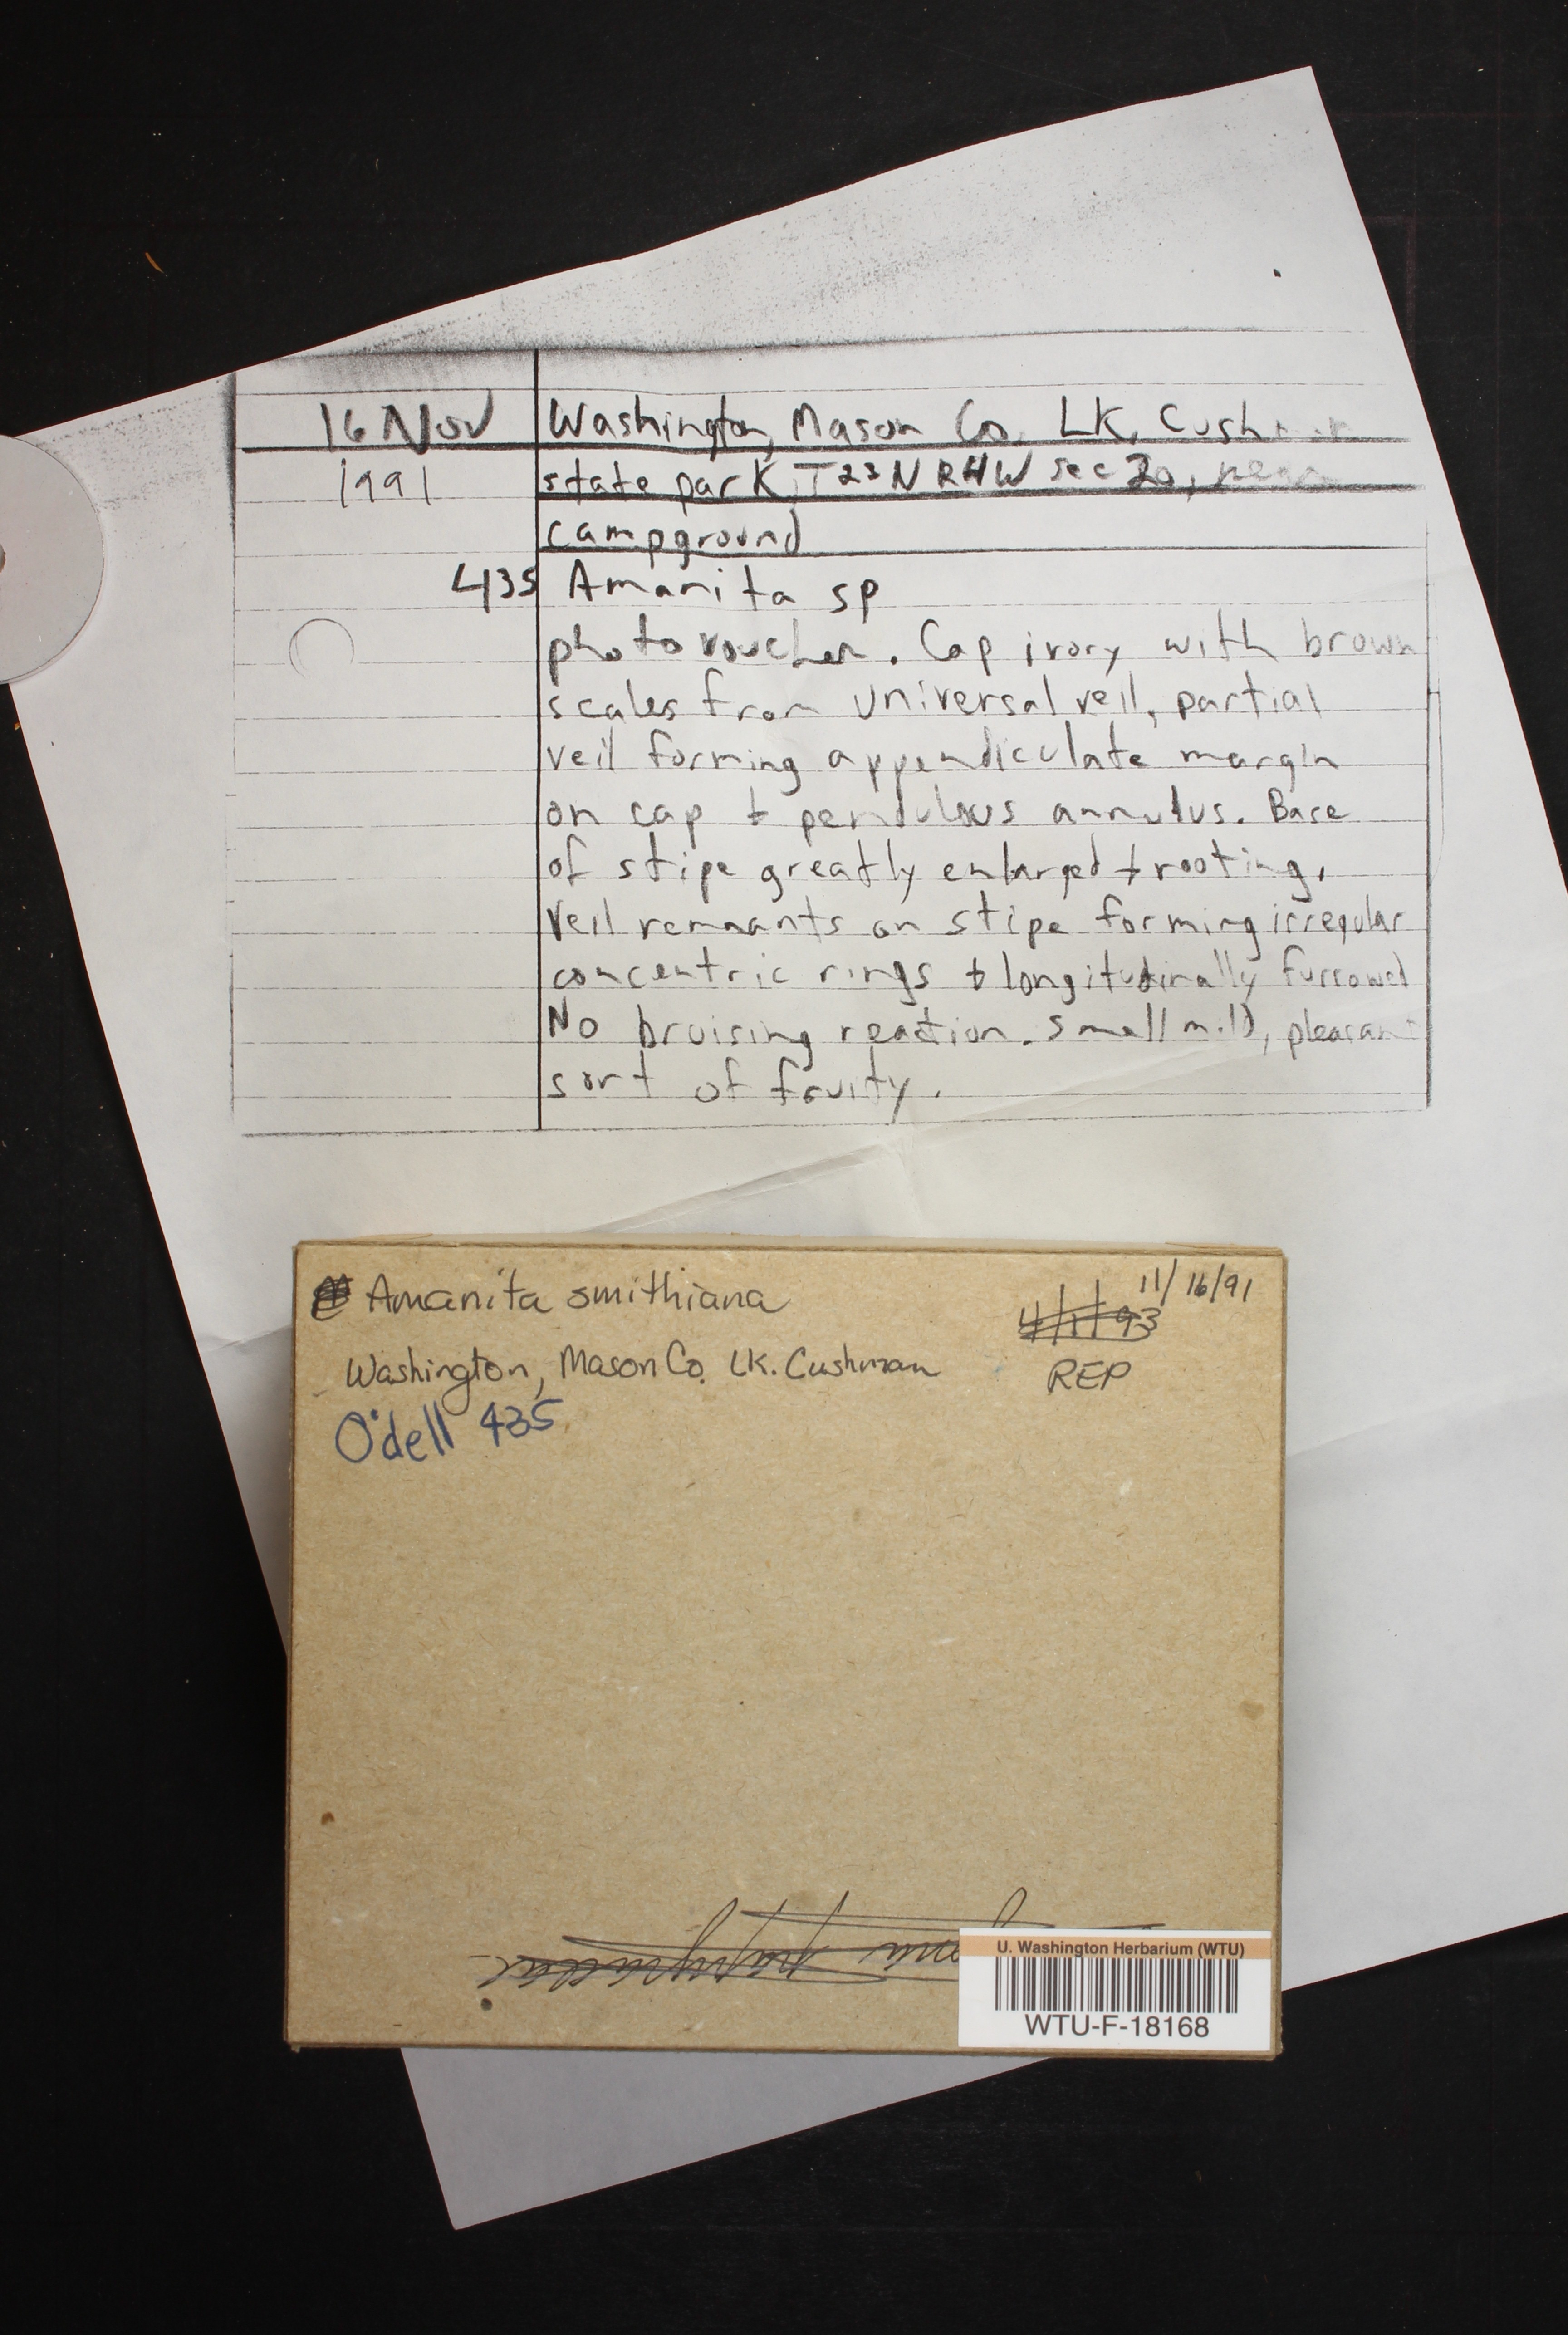 16 Nov Washington, Mason Co. LK. Cushman
1991 state park, T23N R4W sec 20, near
campground
435 Amanita sp
photo voucher. Cap ivory with brown
scales from universal veil, partial
veil forming appendiculate margin
on cap + pendulous annulus. Base
of stipe greatly enlarged + rooting.
Veil remnants on stipe forming irregular
concentric rings + longitudinally furrowed
No bruising reaction. Smell mild, pleasant
sort of fruity.
Amanita smithiana 11/16/91
4/1/93
Washington, Mason Co. LK. Cushman REP
O'dell 435
U. Washington Herbarium (WTU)
WTU-F-18168